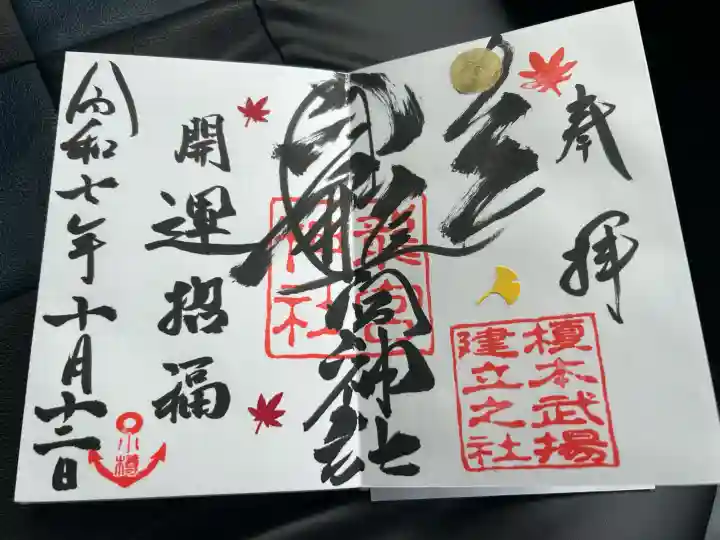 奉拝
榎本武揚
建立之社
龍宮神社
龍宮
神社
開運招福
令和七年十月十二日
小樽